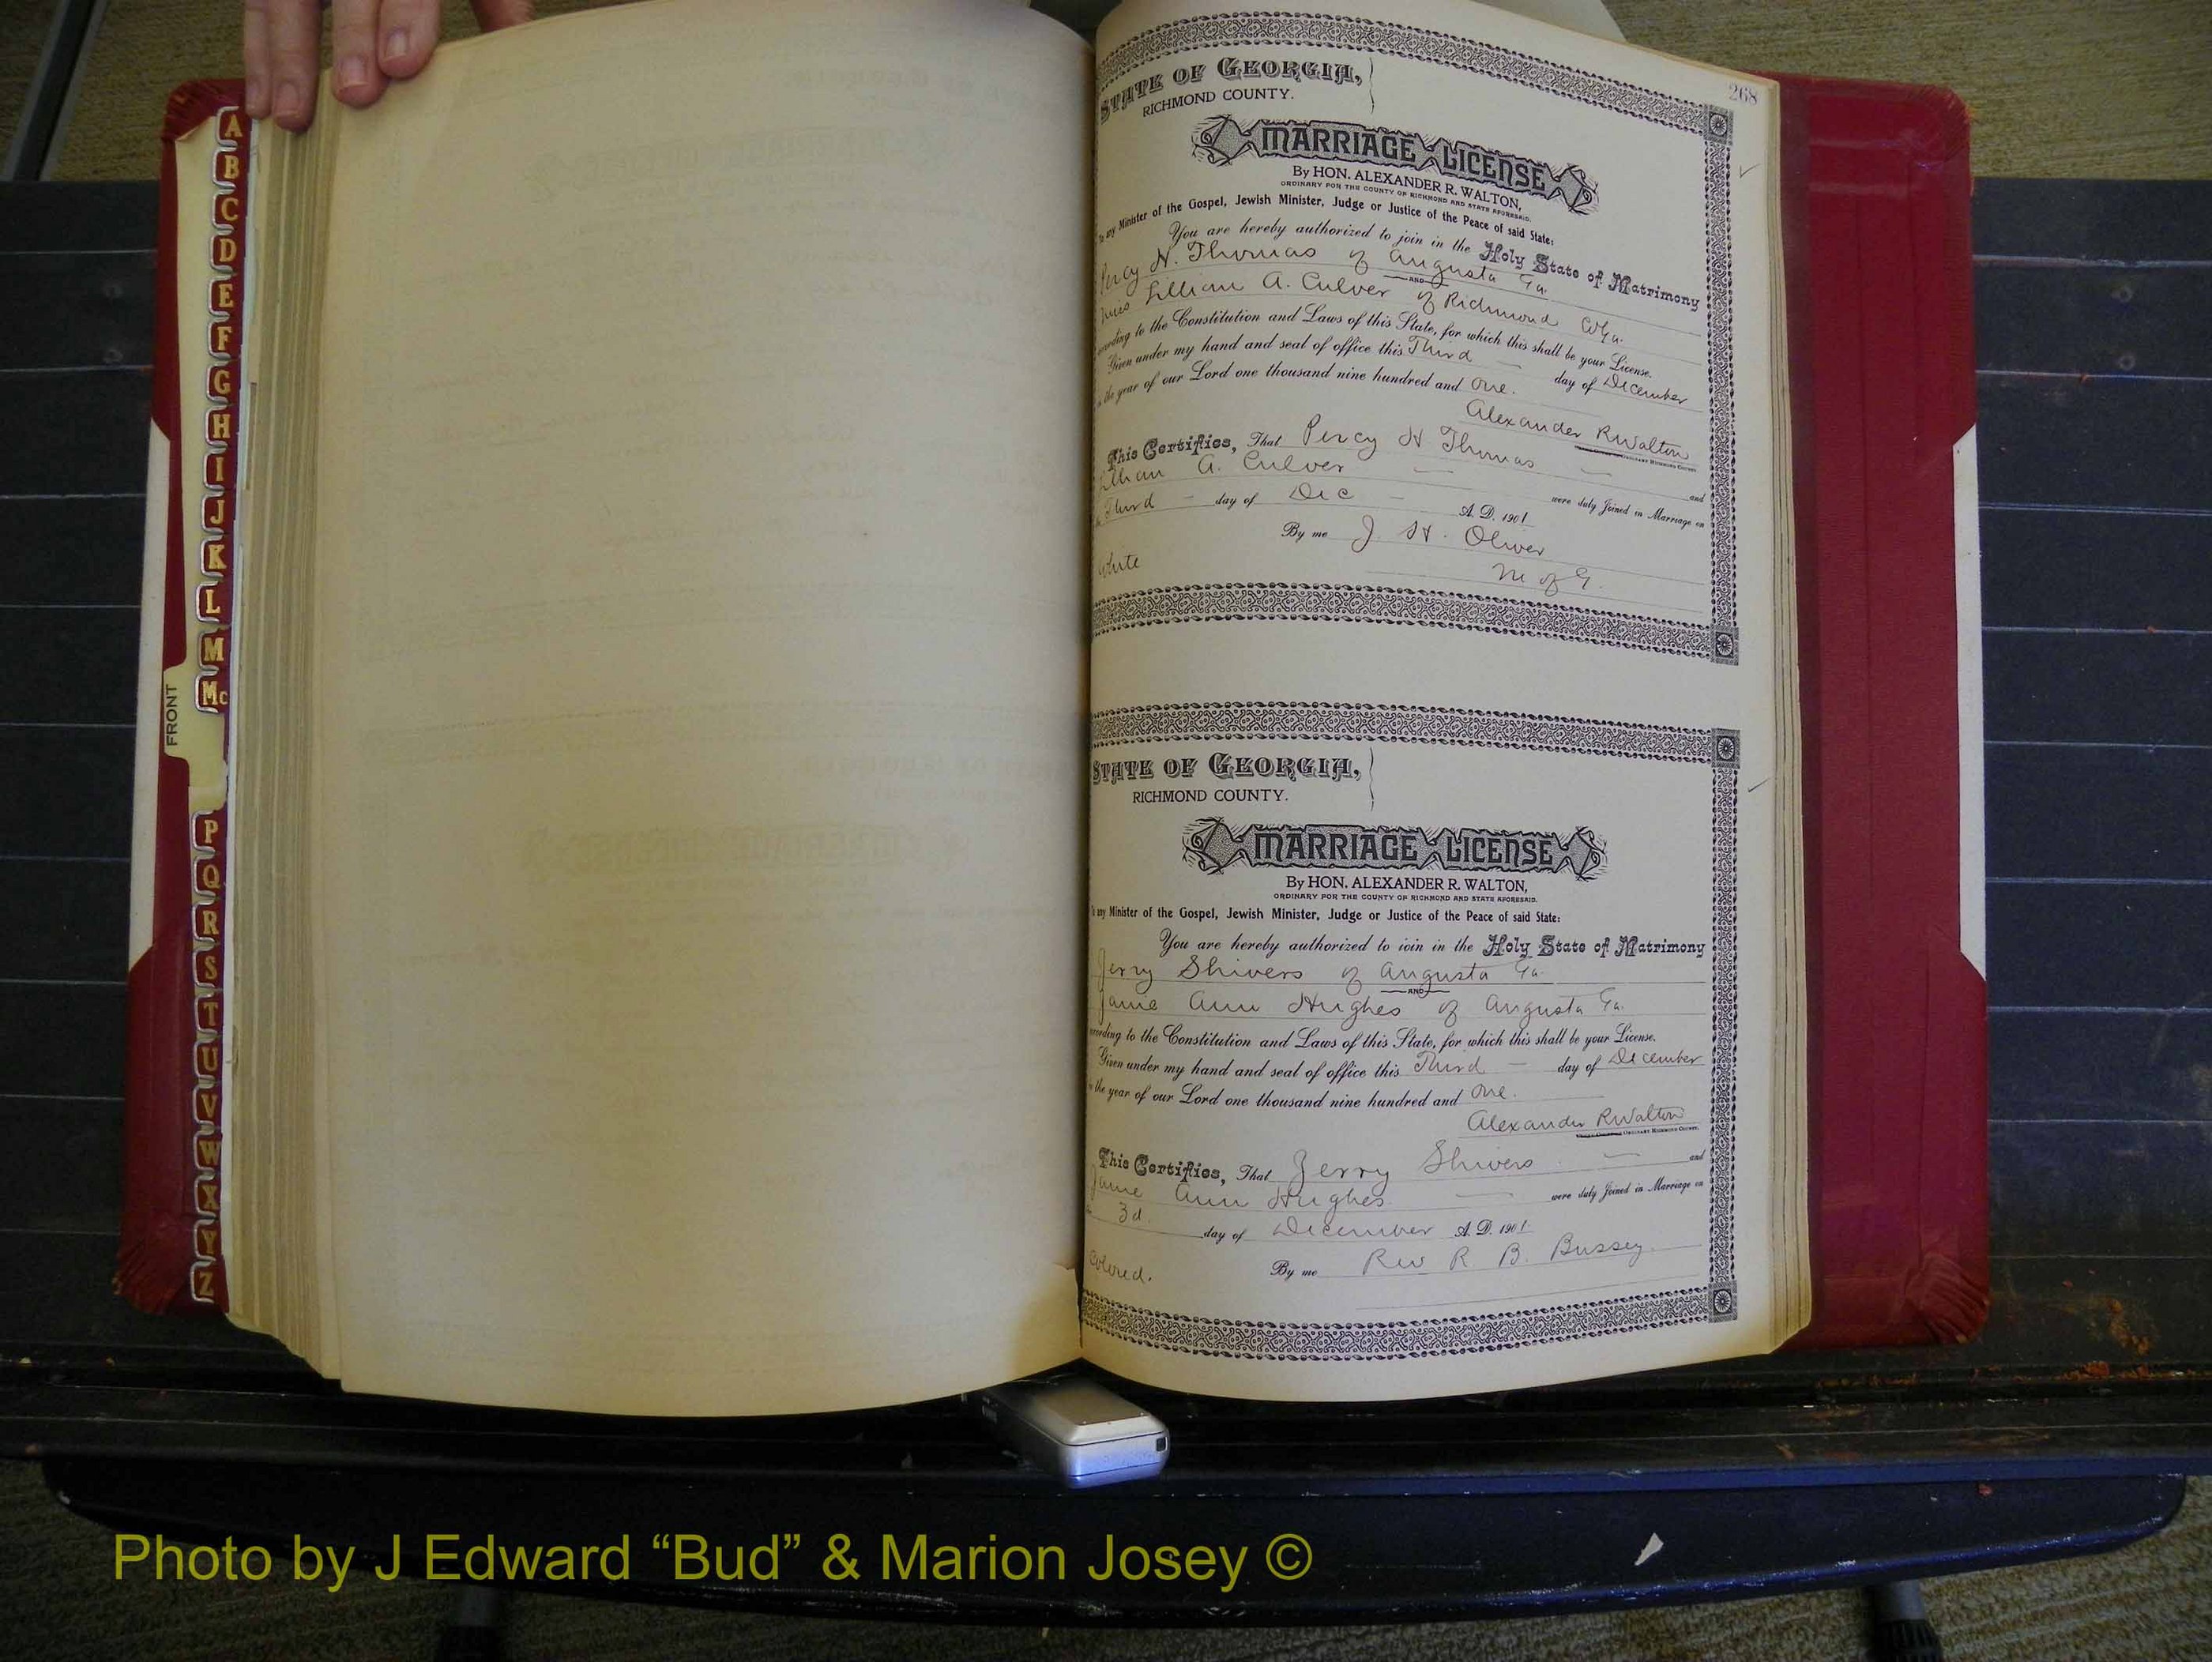 A
B
C
D
E
F
G
H
I
J
K
L
M
Mc
FRONT
P
Q
R
S
T
U
V
W
X
Y
Z
268
STATE OF GEORGIA,
RICHMOND COUNTY.
MARRIAGE LICENSE
By HON. ALEXANDER R. WALTON,
ORDINARY FOR THE COUNTY OF RICHMOND AND STATE AFORESAID.
To any Minister of the Gospel, Jewish Minister, Judge or Justice of the Peace of said State:
You are hereby authorized to join in the Holy State of Matrimony
Percy H. Thomas of Augusta Ga.
AND
Miss Lillian A. Culver of Richmond Co Ga.
according to the Constitution and Laws of this State, for which this shall be your License.
Given under my hand and seal of office this Third day of December
in the year of our Lord one thousand nine hundred and one.
Alexander R Walton
ORDINARY RICHMOND COUNTY.
This Certifies, That Percy H Thomas — and
Lillian A. Culver — were duly Joined in Marriage on
Third – day of Dec – A. D. 1901
By me J. H. Oliver
White M of G.
STATE OF GEORGIA,
RICHMOND COUNTY.
MARRIAGE LICENSE
By HON. ALEXANDER R. WALTON,
ORDINARY FOR THE COUNTY OF RICHMOND AND STATE AFORESAID.
To any Minister of the Gospel, Jewish Minister, Judge or Justice of the Peace of said State:
You are hereby authorized to join in the Holy State of Matrimony
Jerry Shivers of Augusta Ga.
AND
Janie Ann Hughes of Augusta Ga.
according to the Constitution and Laws of this State, for which this shall be your License.
Given under my hand and seal of office this Third – day of December
in the year of our Lord one thousand nine hundred and one.
Alexander R Walton
ORDINARY RICHMOND COUNTY.
This Certifies, That Jerry Shivers — and
Janie Ann Hughes — were duly Joined in Marriage on
3d. day of December A. D. 1901
Colored. By me Rev R B. Bussey
Photo by J Edward “Bud” & Marion Josey ©